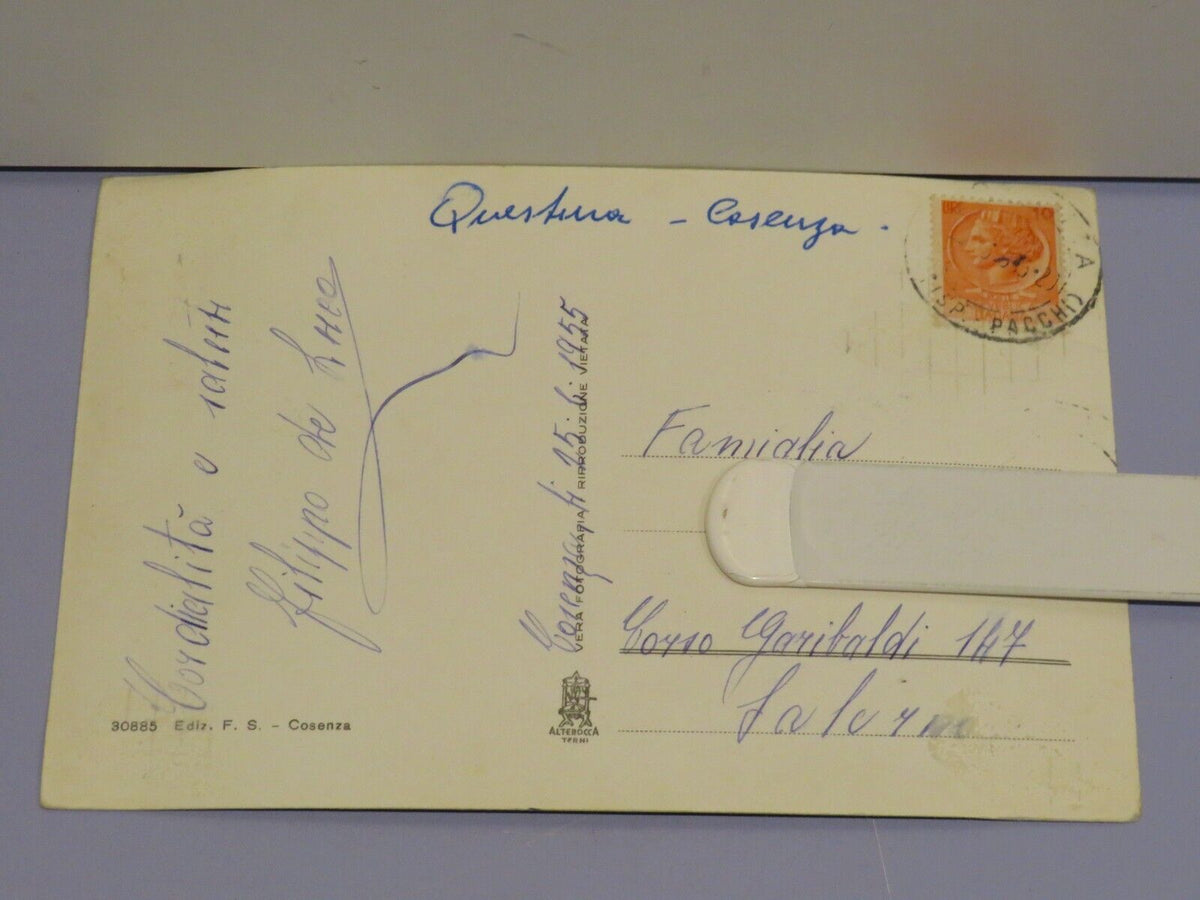 Questura - Cosenza.
LIRE 10
PACCHI
Cordialità e saluti
Filippo de Luca
Cosenza, li 25.6.1955
VERA FOTOGRAFIA RIPRODUZIONE VIETATA
Famiglia
Corso Garibaldi 147
Salerno
ALTEROCCA
TERNI
30885 Ediz. F. S. - Cosenza